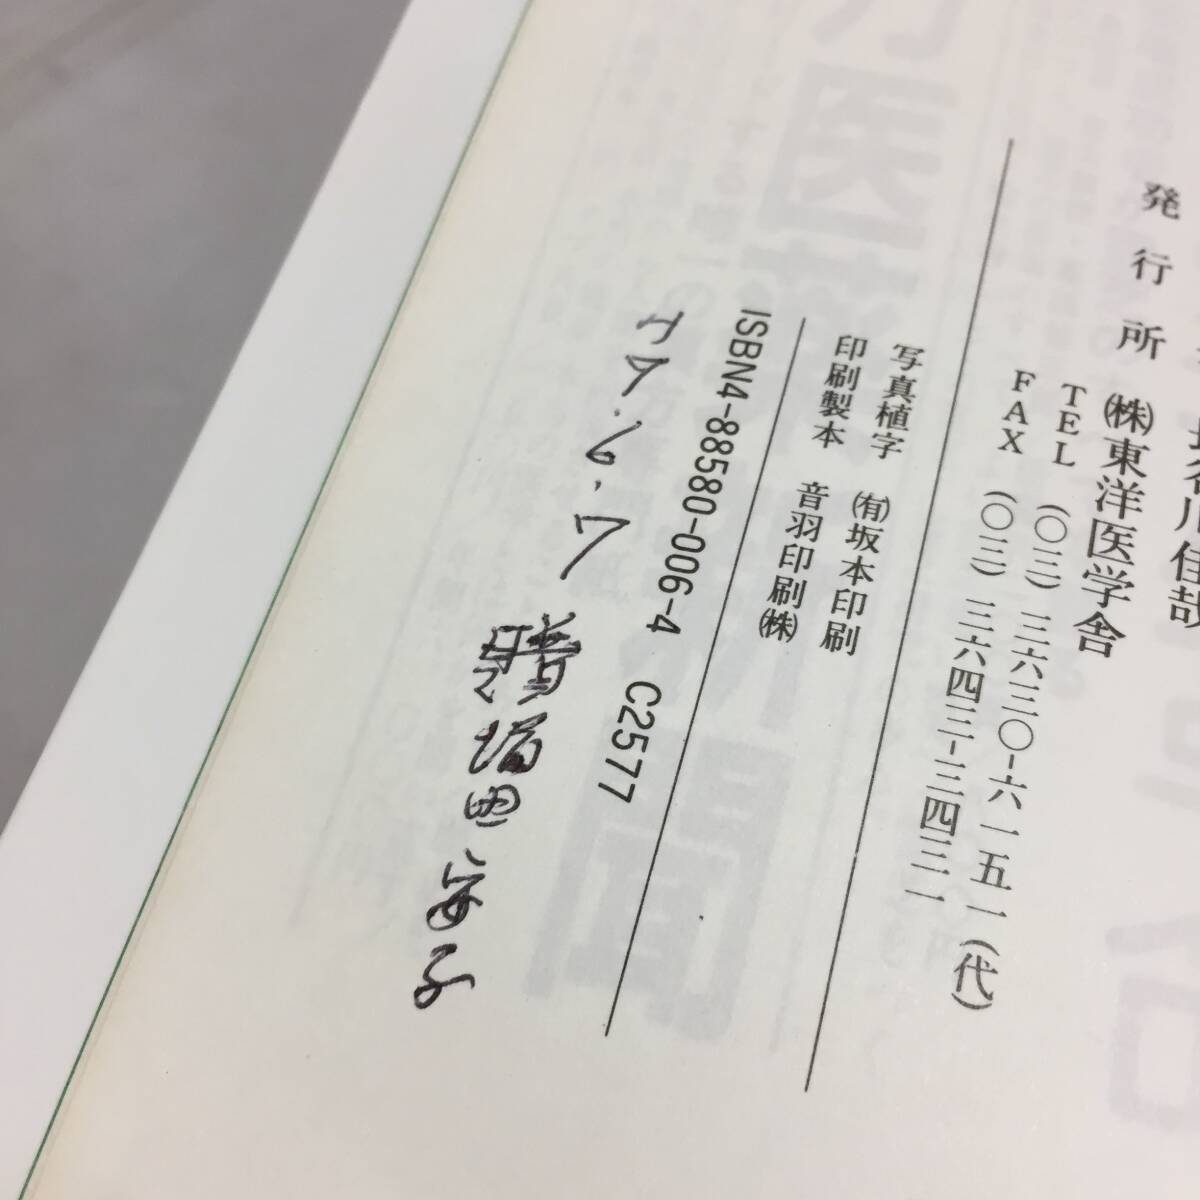 長谷川佳哉
発行所 ㈱東洋医学舎
TEL (〇三) 三六三〇-六一五一 (代)
FAX (〇三) 三六四三-三四三一
写真植字 ㈲坂本印刷
印刷製本 音羽印刷㈱
ISBN4-88580-006-4 C2577
6.7
田安子